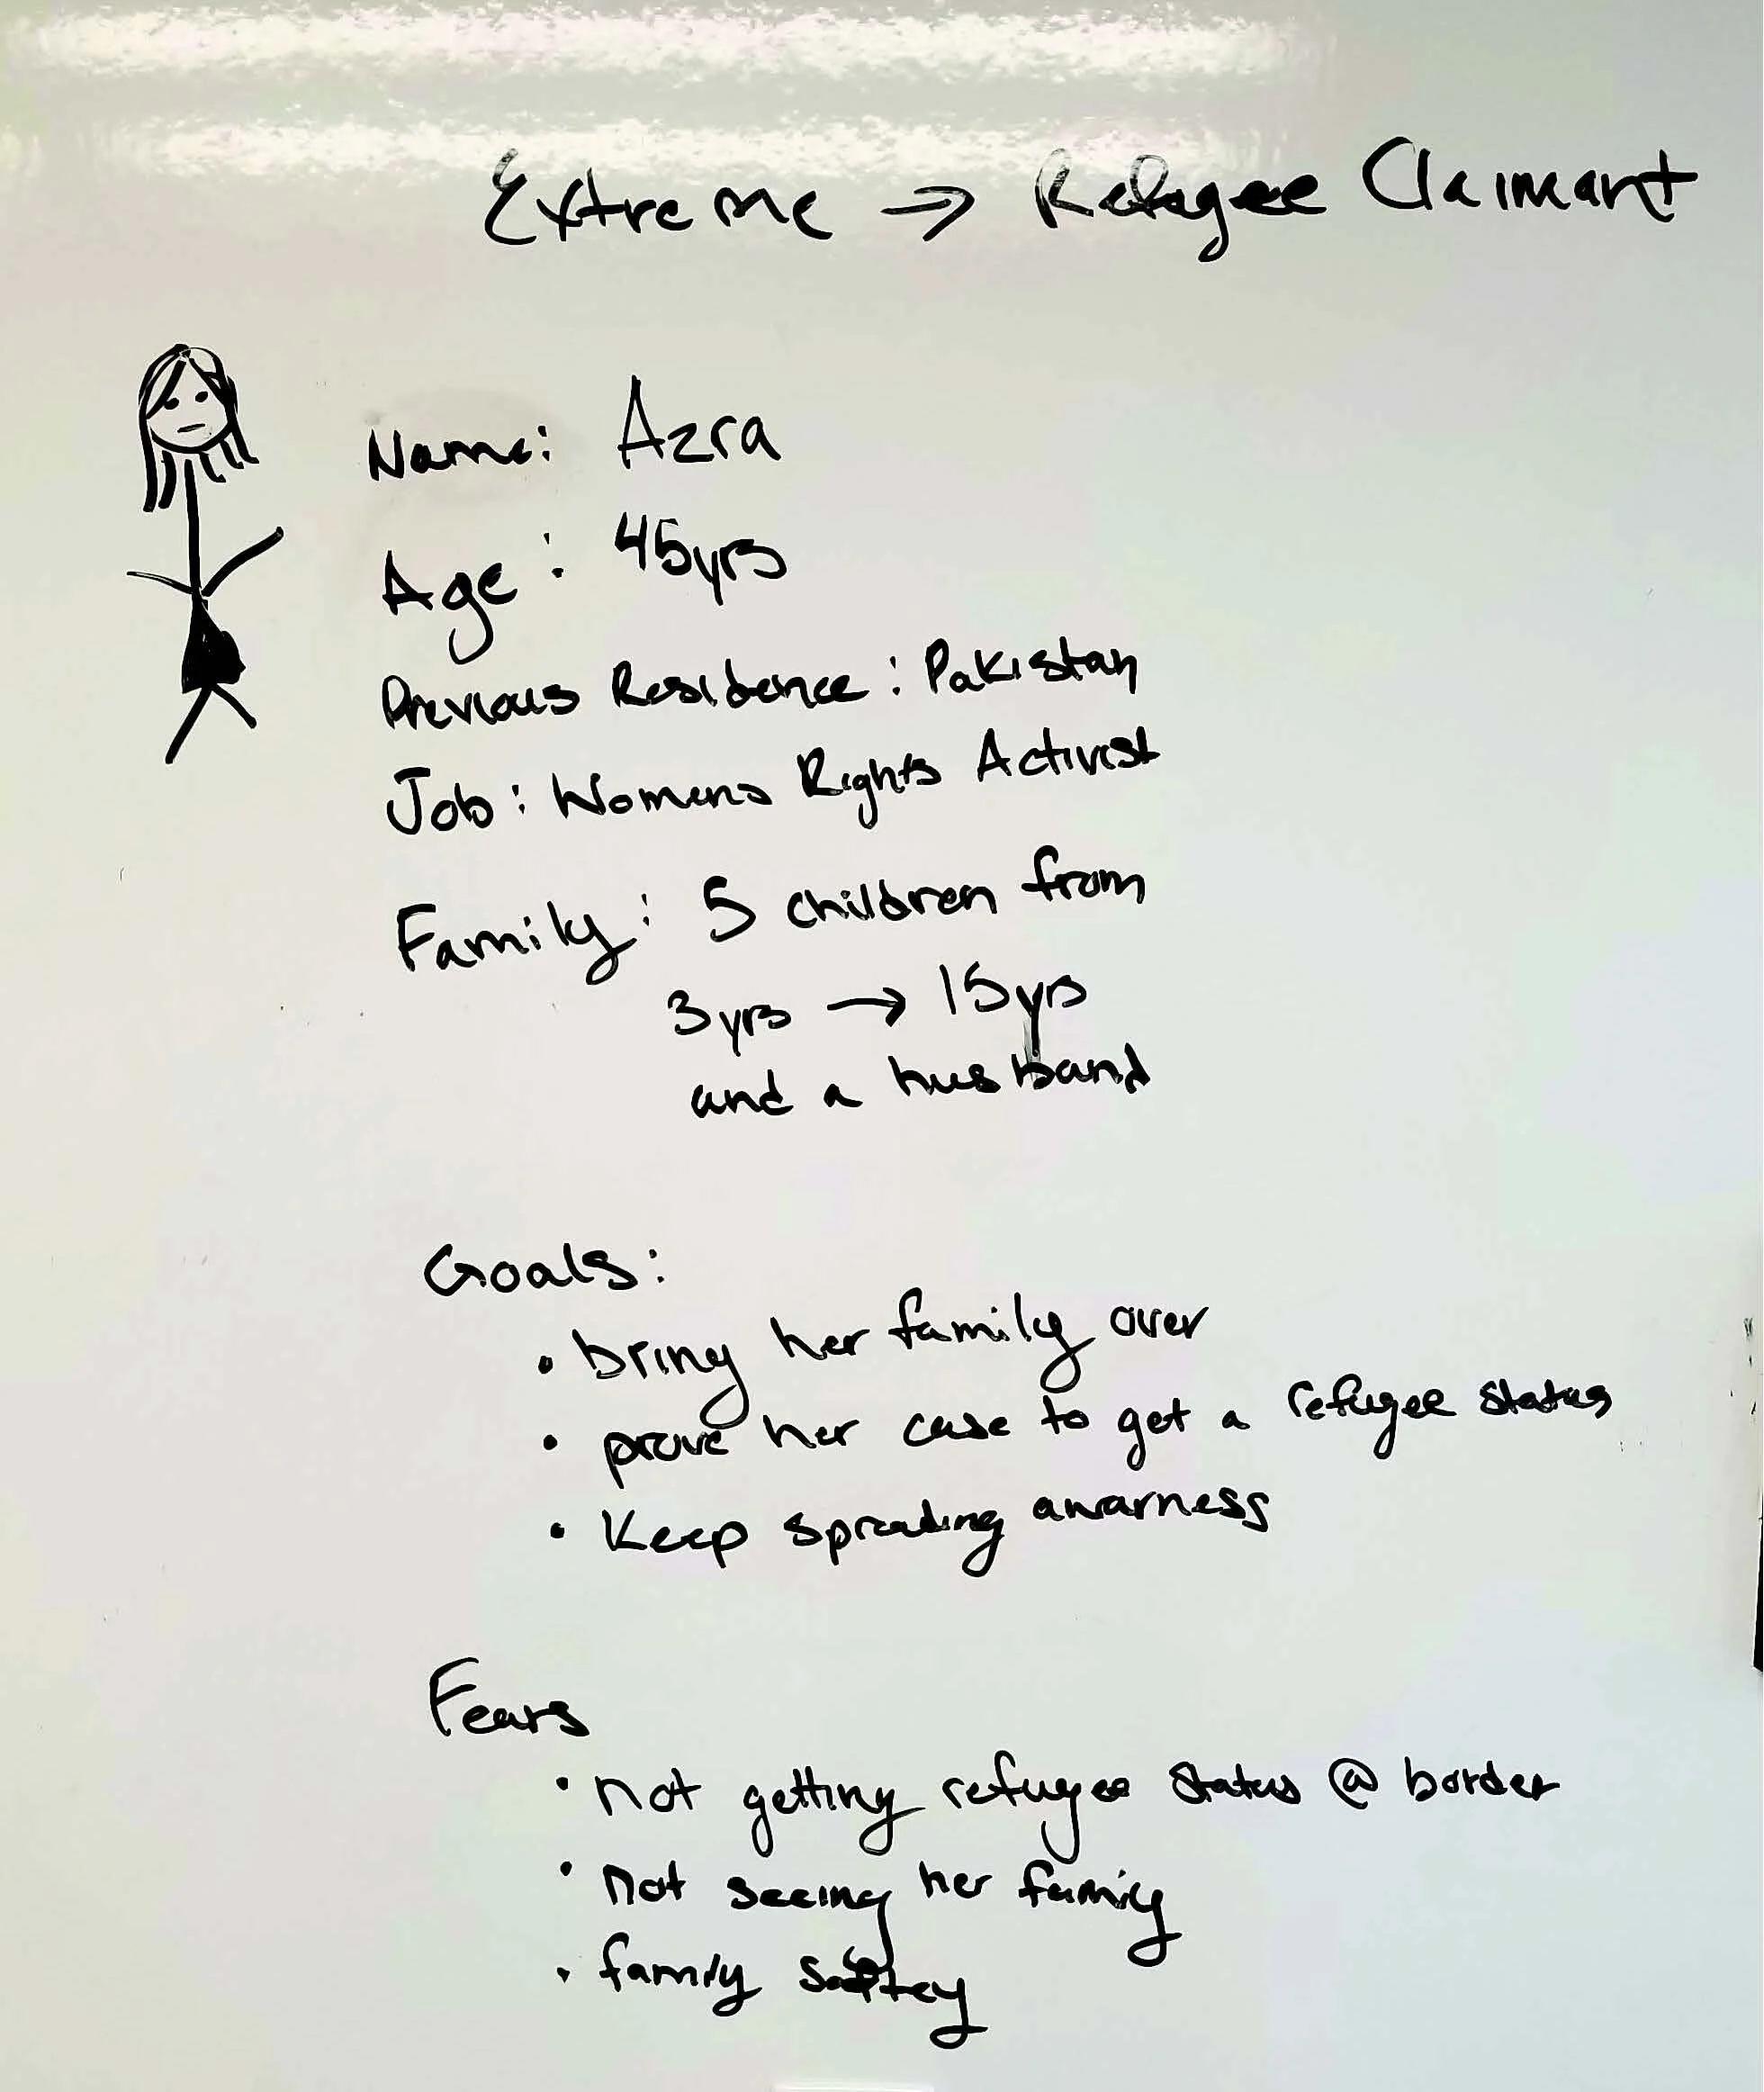 Extreme → Refugee Claimant
Name: Azra
Age: 45yrs
Previous Residence: Pakistan
Job: Womens Rights Activist
Family: 5 children from
3yrs → 15yrs
and a husband
Goals:
• bring her family over
• prove her case to get a refugee status
• Keep spreading awarness
Fears
• not getting refugee status @ border
• not seeing her family
• family saftey